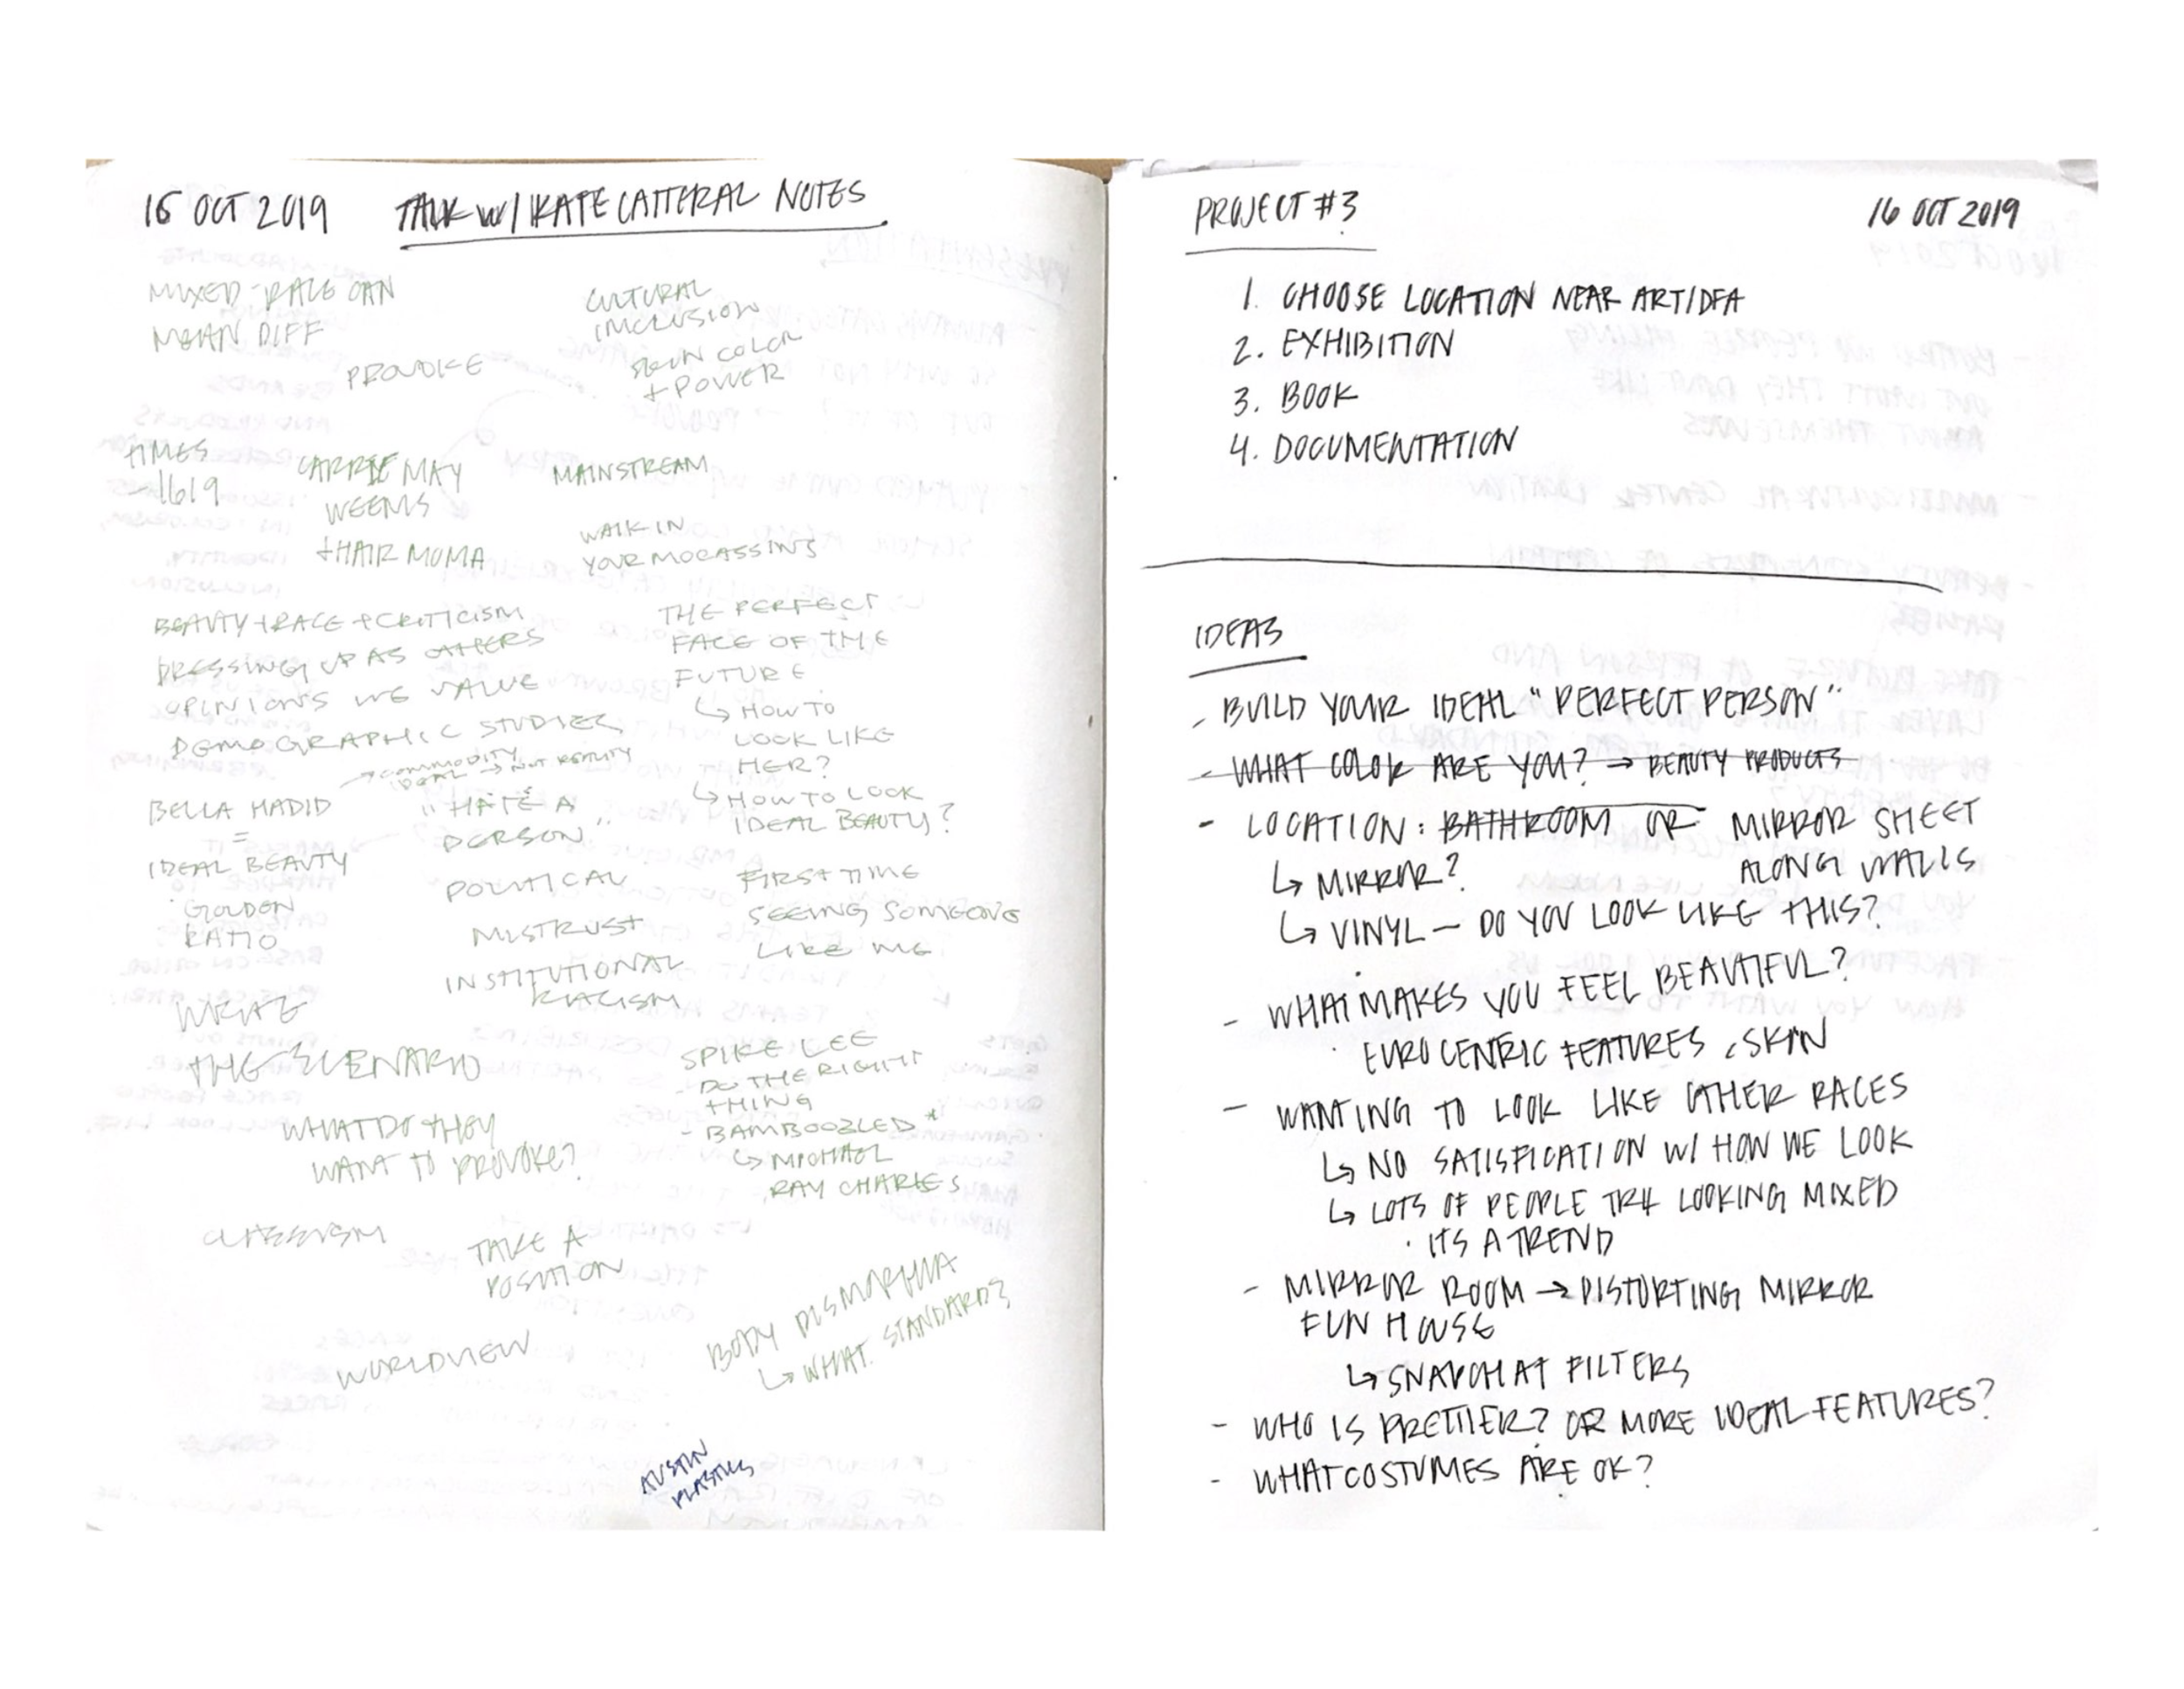 16 OCT 2019 TALK W/ KATE CATTERAL NOTES
MIXED-RACE CAN
MEAN DIFF
PROVOKE
CULTURAL
INCLUSION
SKIN COLOR
+ POWER
TIMES
-1619
CARRIE MAY
WEEMS
+HAIR MOMA
MAINSTREAM
WALK IN
YOUR MOCASSINS
BEAUTY + RACE + CRITICISM
DRESSING UP AS OTHERS
OPINIONS WE VALUE
DEMOGRAPHIC STUDIES
→ COMMODITY
IDEAL → NOT REALITY
BELLA HADID
=
IDEAL BEAUTY
· GOLDEN
RATIO
"HATE A
PERSON"
POLITICAL
MISTRUST
INSTITUTIONAL
RACISM
THE PERFECT
FACE OF THE
FUTURE
↳ HOW TO
LOOK LIKE
HER?
↳ HOW TO LOOK
IDEAL BEAUTY?
FIRST TIME
SEEING SOMEONE
LIKE ME
WRITE
THE SCENARIO
WHAT DO THEY
WANT TO PROVOKE?
SPIKE LEE
- DO THE RIGHT
THING
- BAMBOOZLED *
↳ MICHAEL
RAY CHARLES
CLASSISM
TAKE A
POSITION
WORLDVIEW
BODY DISMORPHIA
↳ WHAT STANDARD?
AUSTIN
PLASTICS
PROJECT #3 16 OCT 2019
1. CHOOSE LOCATION NEAR ART/DFA
2. EXHIBITION
3. BOOK
4. DOCUMENTATION
IDEAS
- BUILD YOUR IDEAL "PERFECT PERSON"
- WHAT COLOR ARE YOU? → BEAUTY PRODUCTS
- LOCATION: BATHROOM OR MIRROR SHEET
ALONG WALLS
↳ MIRROR?
↳ VINYL — DO YOU LOOK LIKE THIS?
- WHAT MAKES YOU FEEL BEAUTIFUL?
· EUROCENTRIC FEATURES, SKIN
- WANTING TO LOOK LIKE OTHER RACES
↳ NO SATISFICATION W/ HOW WE LOOK
↳ LOTS OF PEOPLE TRY LOOKING MIXED
· ITS A TREND
- MIRROR ROOM → DISTORTING MIRROR
FUN HOUSE
↳ SNAPCHAT FILTERS
- WHO IS PRETTIER? OR MORE IDEAL FEATURES?
- WHAT COSTUMES ARE OK?